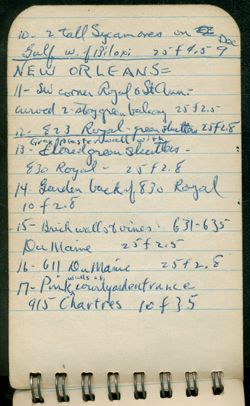 10- 2 tall Sycamores on
Gulf w. of Biloxi 25 f 4.5 9 Dec
NEW ORLEANS=
11- SW corner Royal & St Ann-
curved 2-story green balcony 25 f 2.5-
12- 823 Royal-green shutters 25 f 2.8
Gray plaster wall with
13- Closed green shutters-
830 Royal- 25 f 2.8
14- Garden back of 830 Royal
10 f 2.8
15- Brick walls & vines: 631-635
DuMaine 25 f 2.5
16- 611 DuMaine 25 f 2.8
17- Pink walls courtyard entrance
915 Chartres 10 f 3.5